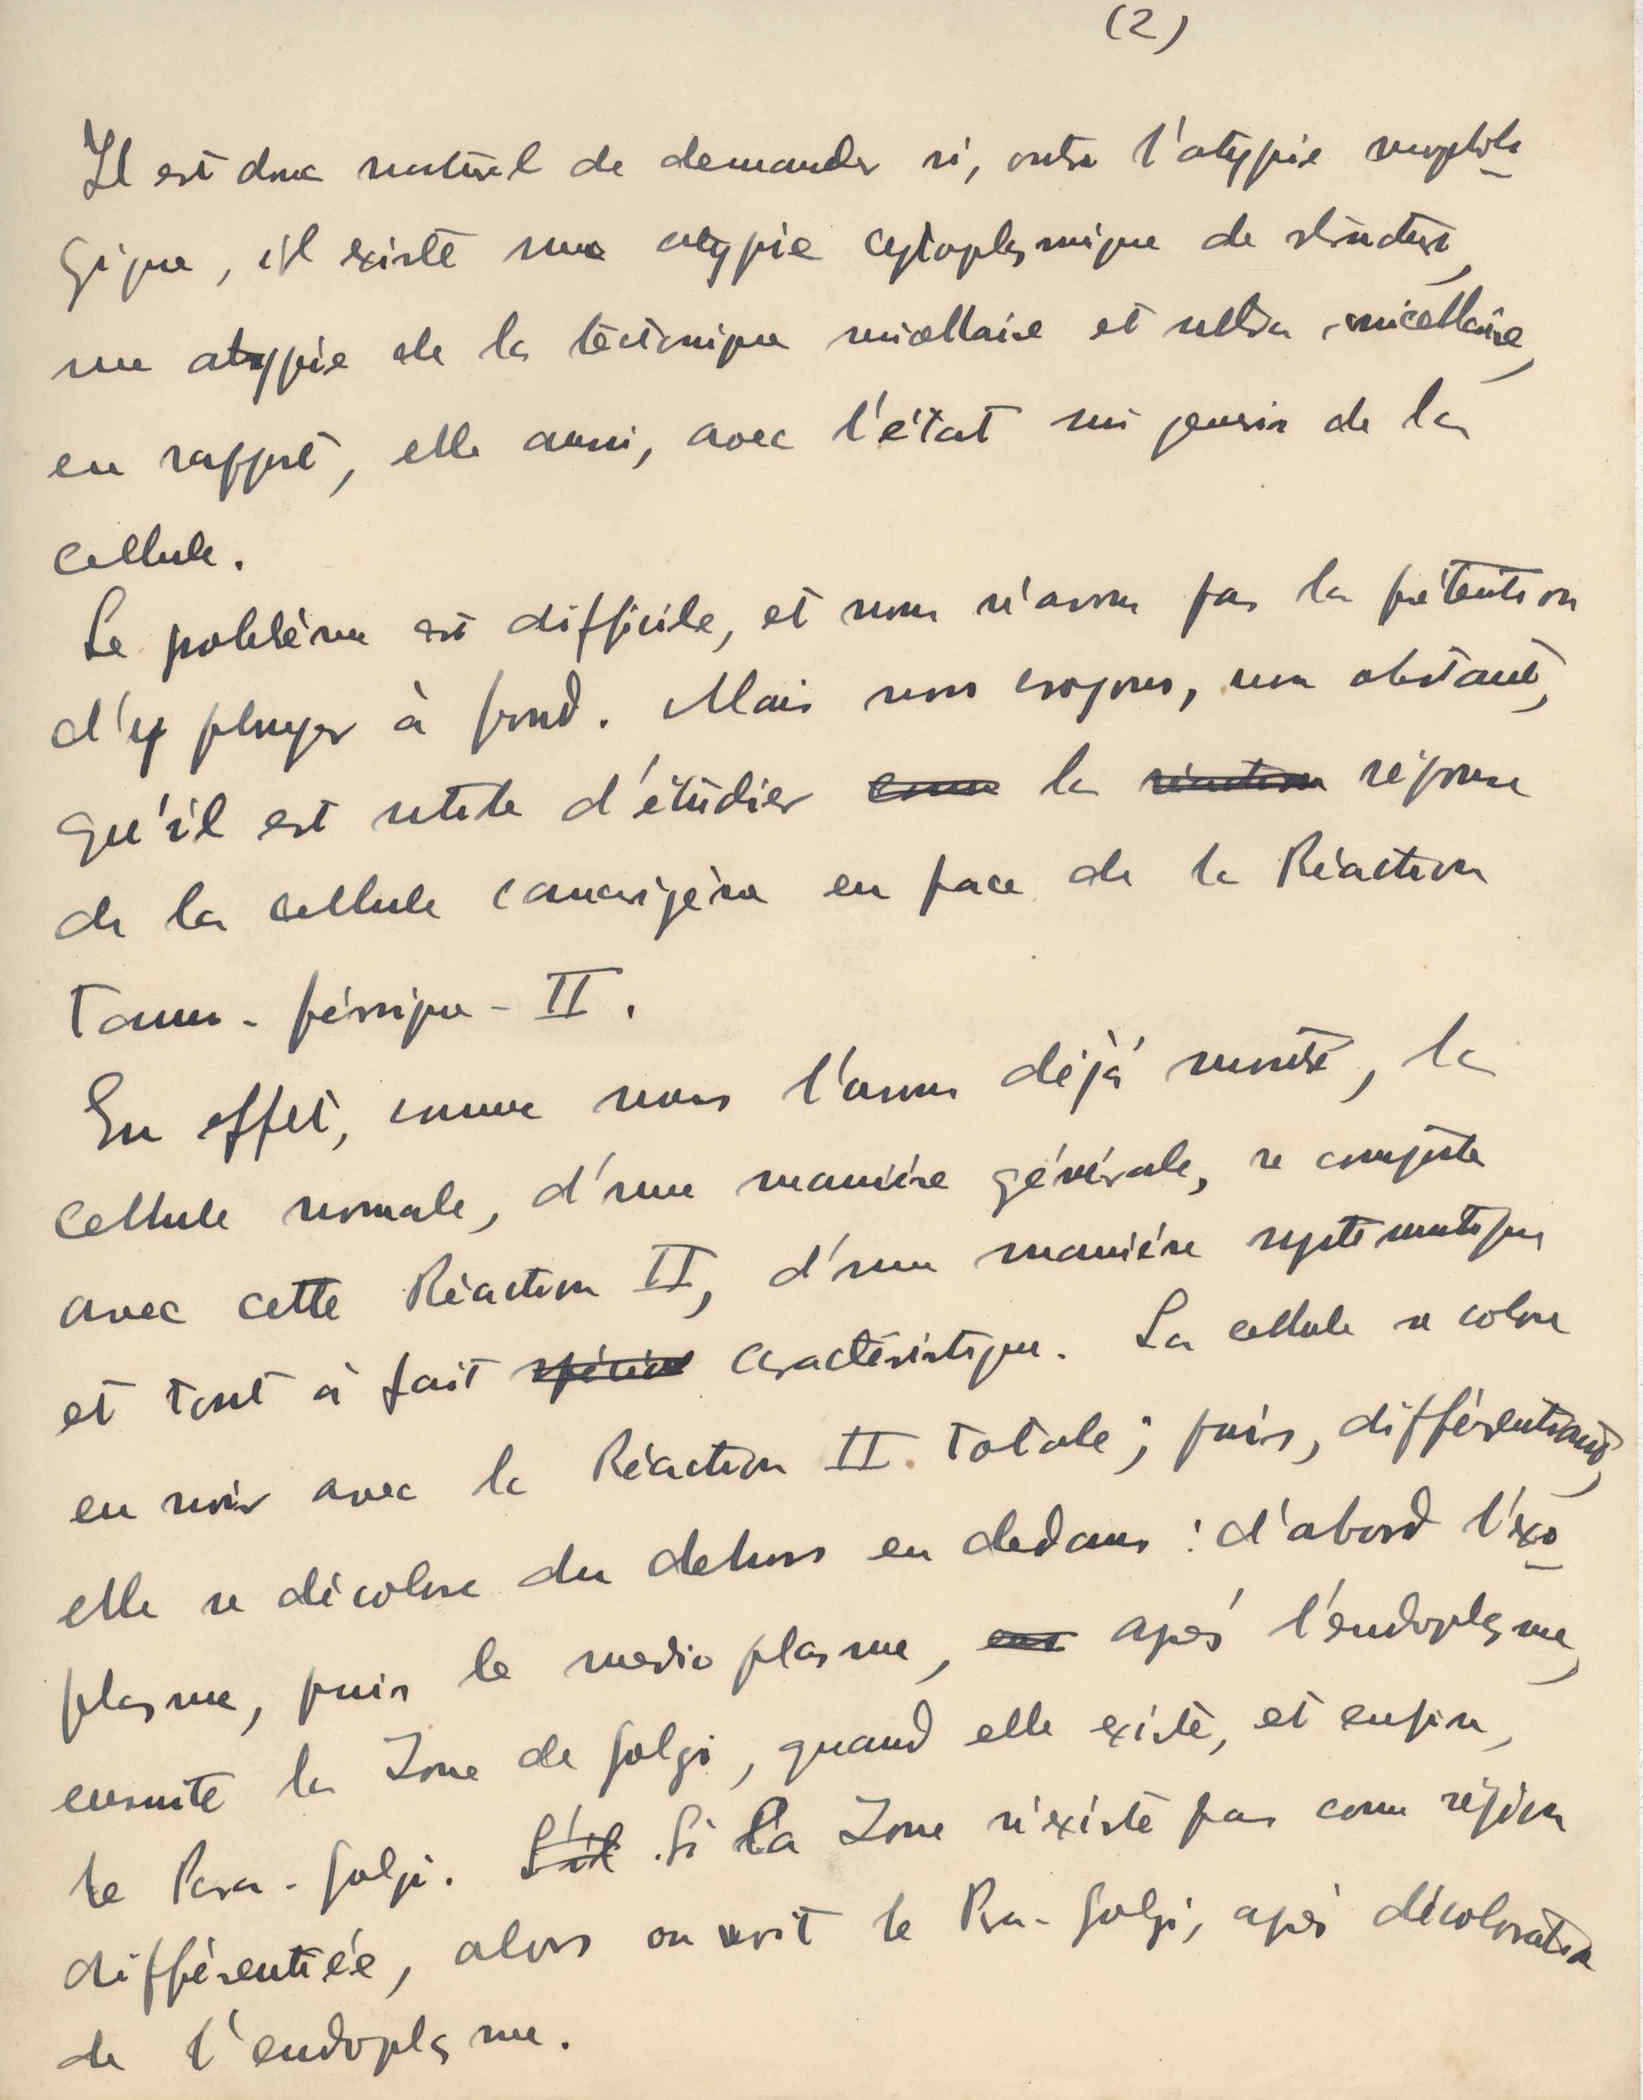 (2)
Il est donc naturel de demander si, outre l'atypie morpholo
gique, il existe une atypie cytoplasmique de structure,
une atypie de la tectonique micellaire et ultra micellaire,
en rapport, elle aussi, avec l'état sui generis de la
cellule.
Le problème est difficile, et nous n'avons pas la prétention
d'y plonger à fond. Mais nous croyons, non obstant,
qu'il est utile d'étudier la réaction réponse
de la cellule cancérigène en face de la Réaction
Tanno-ferrique-II.
En effet, comme nous l'avons déjà montré, la
cellule normale, d'une manière générale, se comporte
avec cette Réaction II, d'une manière systématique
et tout à fait spécial caractéristique. La cellule se colore
en noir avec la Réaction II totale; puis, différentiant,
elle se décolore du dehors en dedans: d'abord l'exo
plasme, puis le medioplasme, ens après l'endoplasme,
ensuite la Zone de Golgi, quand elle existe, et enfin,
le Para-Golgi. S'il Si la Zone n'existe pas comme région
différentiée, alors on voit le Para-Golgi, après décoloration
de l'endoplasme.